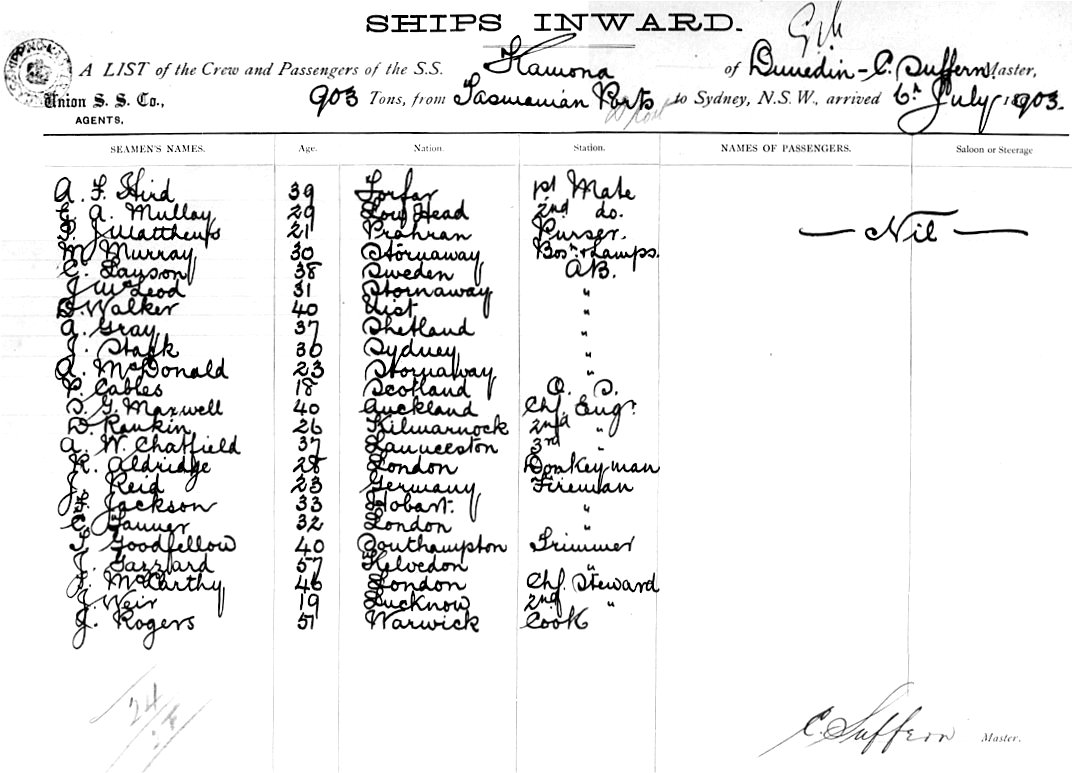 SHIPS INWARD.
A LIST of the Crew and Passengers of the S.S. Kamona of Dunedin - C. Suffern Master,
Union S. S. Co., 903 Tons, from Tasmanian Ports to Sydney, N.S.W., arrived 6th July 1903.
AGENTS.
SEAMEN'S NAMES. Age. Nation. Station. NAMES OF PASSENGERS. Saloon or Steerage
A. F. Hird 39 Forfar 1st Mate
A. Mullay 29 Low Head 2nd do.
J Matthews 21 Prahran Purser. — Nil —
M. Murray 30 Stornaway Bosn & Lamps.
C. Layson 38 Sweden AB.
J. McLeod 31 Stornaway "
D. Walker 40 Uist "
A. Gray 37 Shetland "
J. Stack 30 Sydney "
A. McDonald 23 Stornaway "
P. Cables 18 Scotland O. S.
G. Maxwell 40 Auckland Chf Engr
D. Rankin 26 Kilmarnock 2nd "
A. W. Chatfield 37 Launceston 3rd "
R. Aldridge 28 London Donkeyman
J. Reid 23 Germany Fireman
Jackson 33 Hobart. "
C. Tanner 32 London "
Goodfellow 40 Southampton Trimmer
J. Gazzard 57 Kelvedon "
McCarthy 46 London Chf. Steward
J. Weir 19 Lucknow 2nd "
J. Rogers 51 Warwick Cook
24
C. Suffern Master.